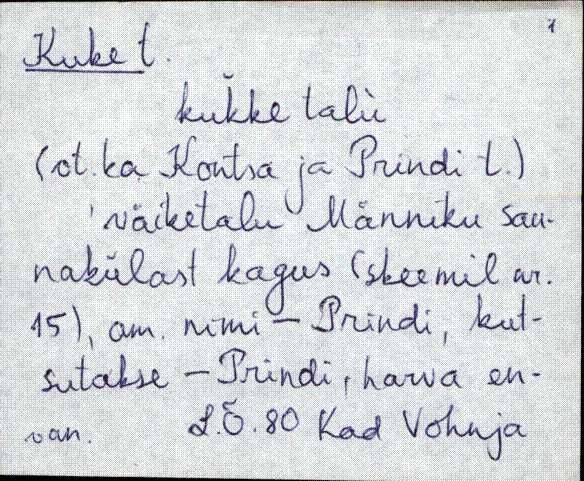 1
Kuke t.
kŭkke talù
(vt. ka Kontsa ja Prindi t.)
väiketalu Männiku sau-
nakülast kagus (skeemil nr.
15), am. nimi - Prindi, kut-
sutakse - Prindi, harva en-
van. L.Õ. 80 Kad Vohnja